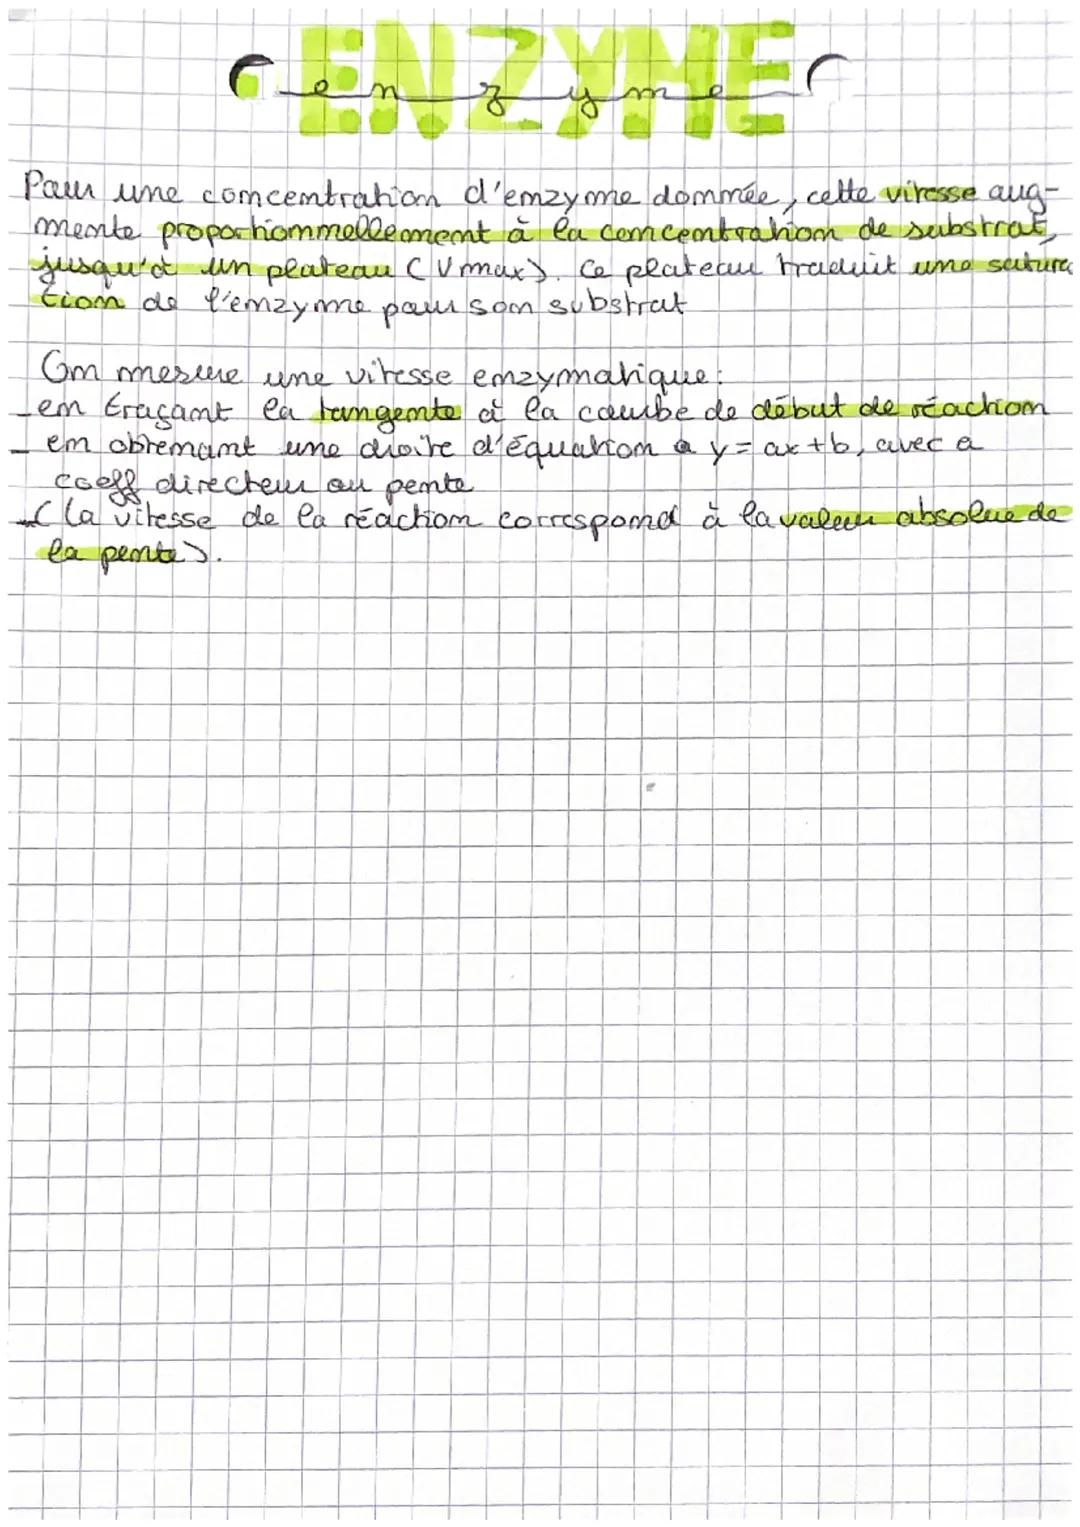 ENZYME
enzyme
Pour une concentration d'enzyme donnée, cette vitesse aug-
mente proportionnellement à la concentration de substrat,
jusqu'à un plateau (Vmax). Ce plateau traduit une satura
tion de l'enzyme pour son substrat
On mesure une vitesse enzymatique :
- en traçant la tangente à la courbe de début de réaction
- en obtenant une droite d'équation a y = ax + b, avec a
coeff directeur ou pente
- (la vitesse de la réaction correspond à la valeur absolue de
la pente).